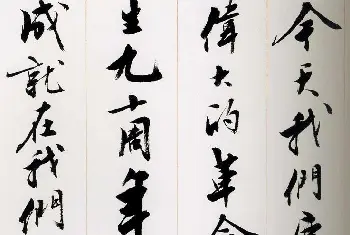 今天我們
偉大的革命
生九十周年
成就在我們